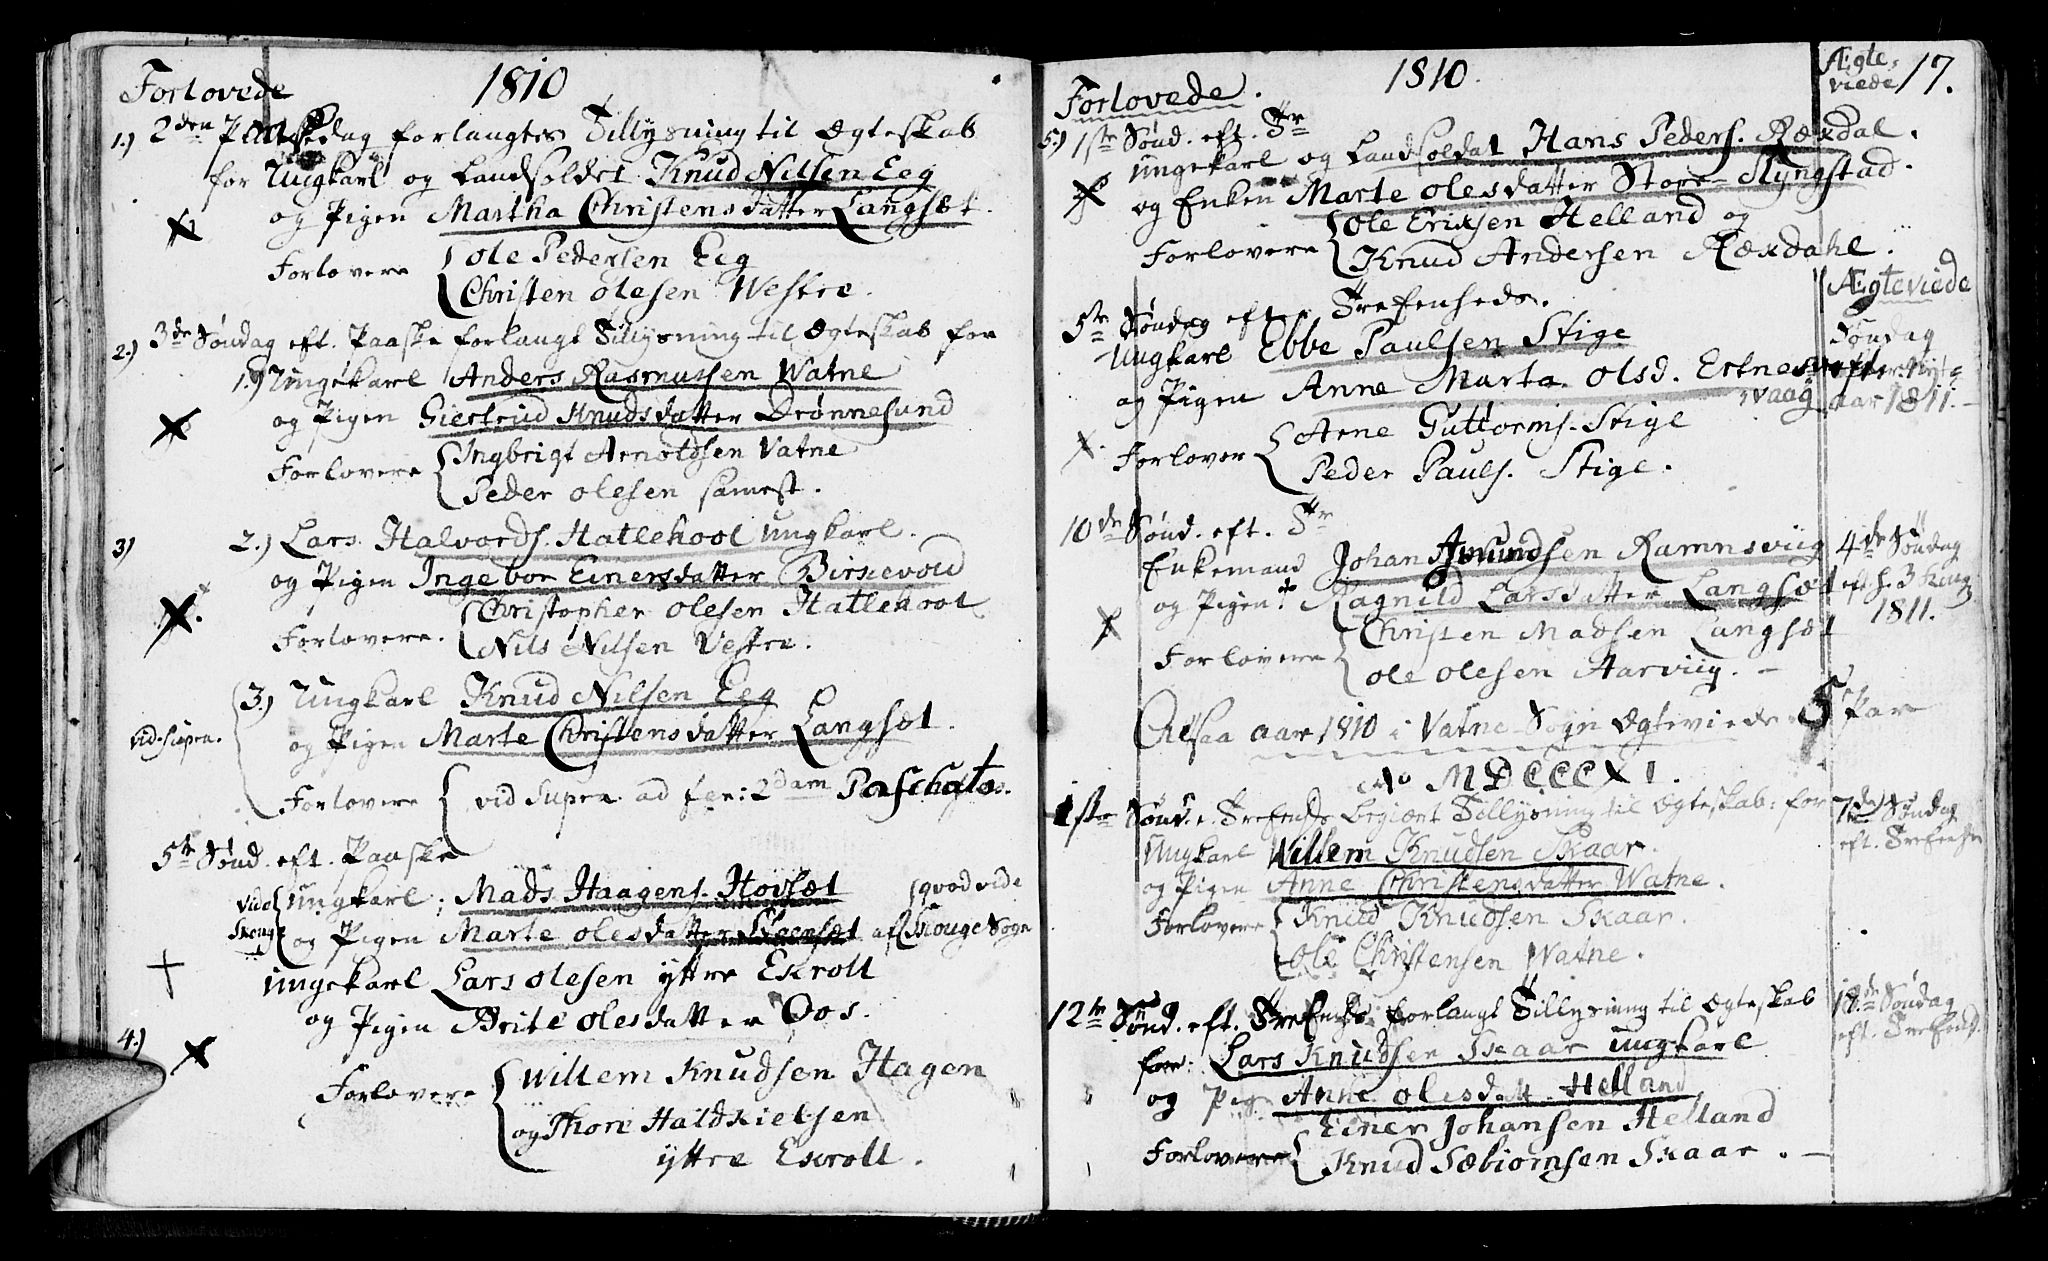 Forlovede 1810
1.) 2den Paaskedag forlangtes Tillysning til Ægteskab
for Ungkarl og Landsoldat Knud Nilsen Eeg
og Pigen Martha Christensdatter Langsæt.
Forlovere Ole Pedersen Eeg
Christen Olesen Westre.
2.) 3de Søndag eft. Paaske forlangt Tillysning til Ægteskab for
1.) Ungekarl Anders Rasmussen Watne
og Pigen Giertrud Knudsdatter Drønnesund
Forlovere Ingbrigt Arnoldsen Vatne
Peder Olesen samest.
3) 2.) Lars Halvords. Hatlehool ungkarl.
og Pigen Ingebor Einersdatter Birkevold
Forlovere. Christopher Olesen Hatlehool
Nils Nilsen Vestre.
3.) Ungkarl Knud Nilsen Eeg
vid. supra. og Pigen Marte Christensdatter Langsæt.
Forlovere vid supra ad fer: 2dam Paschatos.
5te Sønd. eft. Paaske
vide Ungkarl; Mads Haagens. Hovsæt qvod vide
Skouge og Pigen Marte Olesdatter af Skouge Sogn
Ungekarl Lars Olesen yttre Ekroll
og Pigen Brite Olesdatter Oos.
4.)
Forlovere Willem Knudsen Hagen
og Thore Haldkielsen
yttre Exroll.
Forlovede. 1810. Ægteviede 17.
5.) 1ste Sønd. eft. Tr
Ungekarl og Landsoldat Hans Peders. Ræxdal.
og Enken Marte Olesdatter Store-Slyngstad.
Forlovere Ole Erixsen Helland og
Knud Andersen Ræxdahl.
5te Søndag eft. Trefenheds.
Ungkarl Ebbe Paulsen Stige
og Pigen Anne Marta Olsd. Ertnes
vaag
Forlover Arne Guttorms. Stige
Peder Pauls. Stige.
Ægteviede
Søndag
efter Nyt
aar 1811.
10de Sønd. eft. Tr
Enkemand Johan Amundsen Ramnsviig
og Pigen Ragnild Larsdatter Langsæt
Forlovere Christen Madsen Langsæt
Ole Olesen Aarviig.
4de Søndag
eft h. 3 Kong
1811.
Altsaa aar 1810 i Vatne Sogn Ægteviede 5 Par
Ao MDCCCXI.
1ste Sønd. e. Trefends begiært Tillysning til Ægteskab: for
Ungkarl Willem Knudsen Skaar.
og Pigen Anne Christensdatter Watne.
Forlovere Knud Knudsen Skaar.
Ole Christensen Watne.
7de Søndag
eft. Trefenhe
12te Sønd. eft. Trefends forlangt Tillysning til Ægteskab
for: Lars Knudsen Skaar ungkarl
og Pig. Anne Olesdatt. Helland
Forlovere Einer Johansen Helland
Knud Sæbiørnsen Skaar.
18.de Søndag
eft. Trefend.